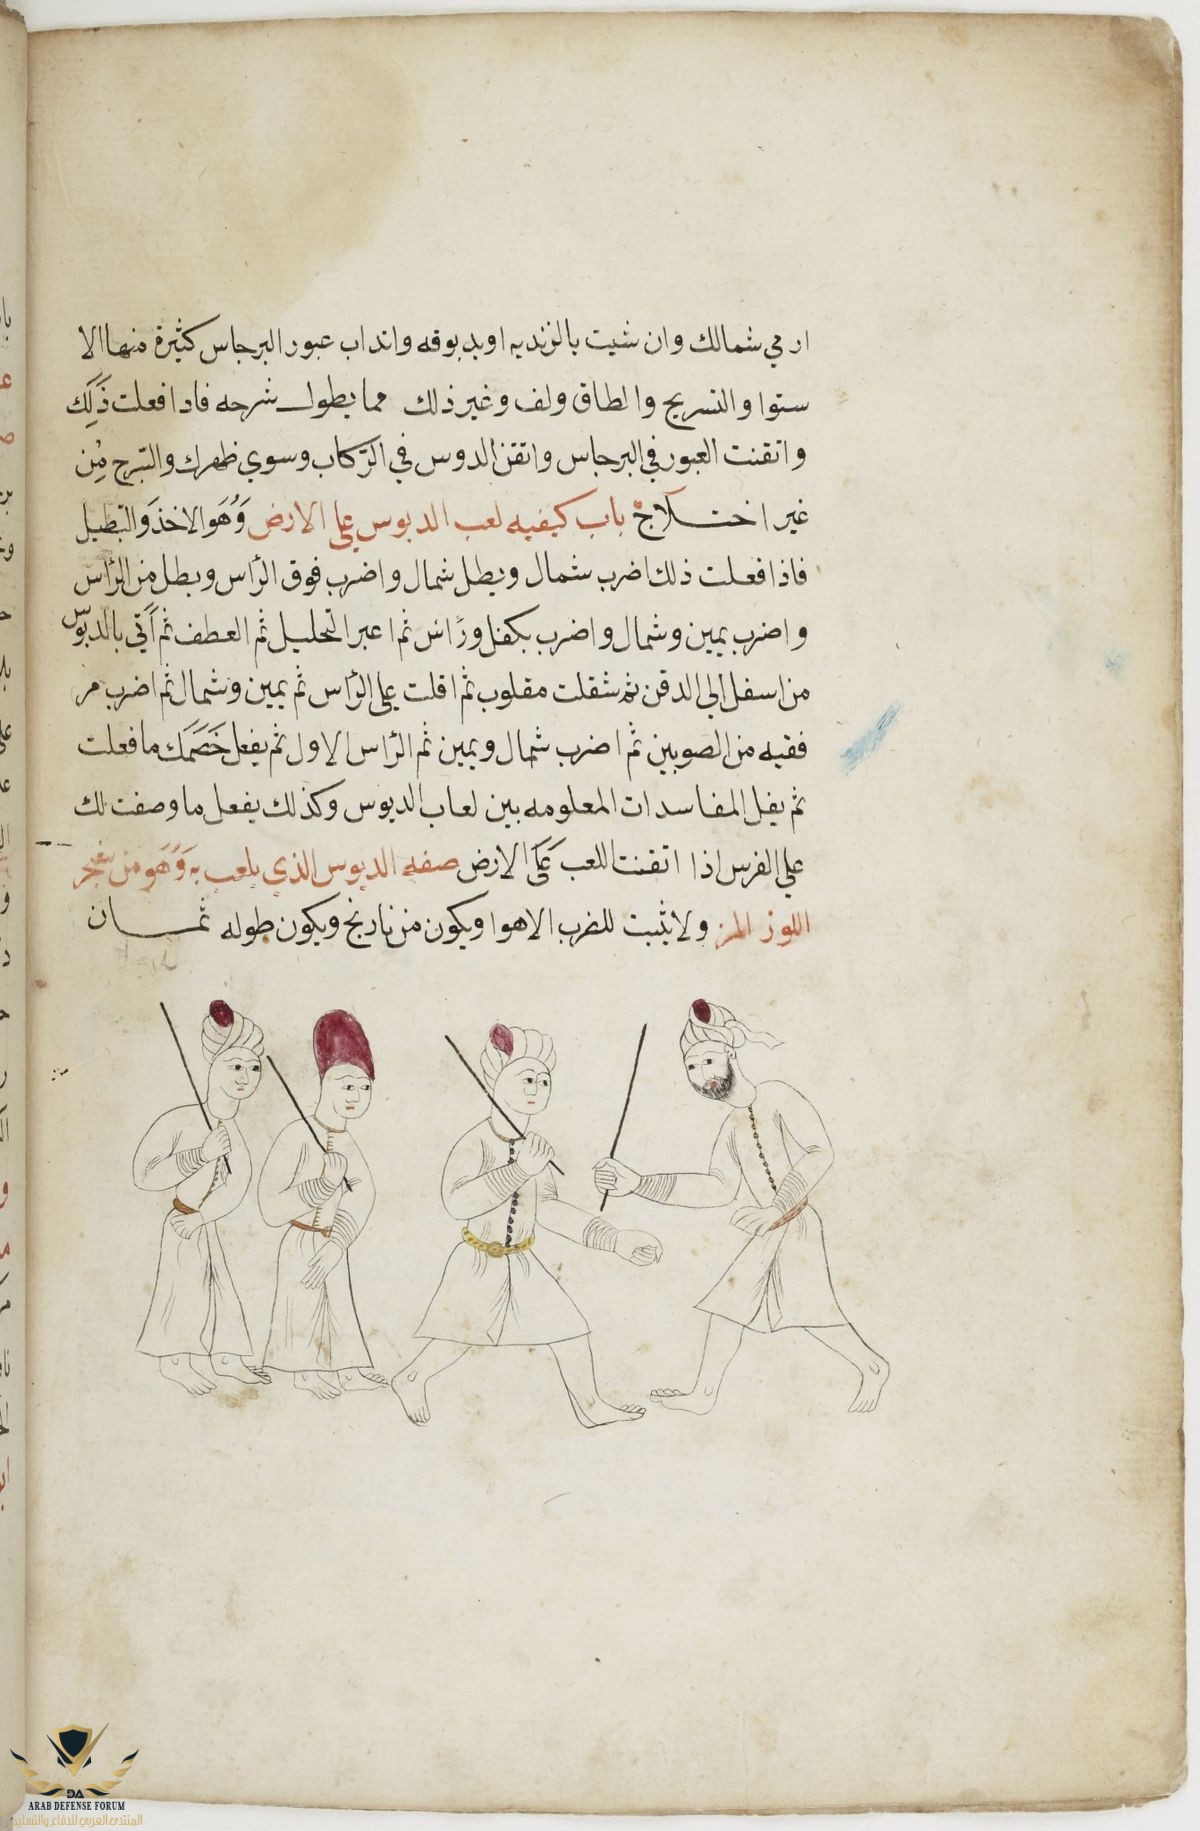 ارمي شمالك وان شيت بالزنديه اوبدبوقه واتداب عبور البرجاس كثيرة منها الا
ستوا والتسريج والطاق ولف وغير ذلك مما يطول شرحه فادا فعلت ذَلِك
واتقنت العبور في البرجاس واتقن الدوس في الرّكاب وسوي ظهرك والتبرج مِن
غير اختلاج باب كيفيه لعب الدبوس على الارض وَهُوَ الاخذ والتبطيل
فاذا فعلت ذلك اضرب شمال وبطل شمال واضرب فوق الرّاس وبطل من الرّاس
واضرب يمين وشمال واضرب بكفل ورَاس ثم اعبر التحليل ثم العطف ثم أتي بالدبّوس
من اسفل الي الدقن ثم شقلت مقلوب ثم اقلت على الرّاس ثم يمين وشمال ثم اضرب من
فقيه من الصوبين ثم اضرب شمال ويمين ثم الرّاس الاول ثم يفعل خَصَمك ما فعلت
ثم يفل المفاسدات المعلومه بين لعاب الدبوس وكذلك يفعل ما وصفت لك
علي الفرس اذا اتقنت اللعب عَلَى الارض صفه الدبوس الذي يلعب به وَهُو من شجر
اللوز المز ولا يثبت للضرب الا هوا ويكون من نارنج ويكون طوله ثمان
ARAB DEFENSE FORUM
المنتدى العربي للدفاع والتسليح